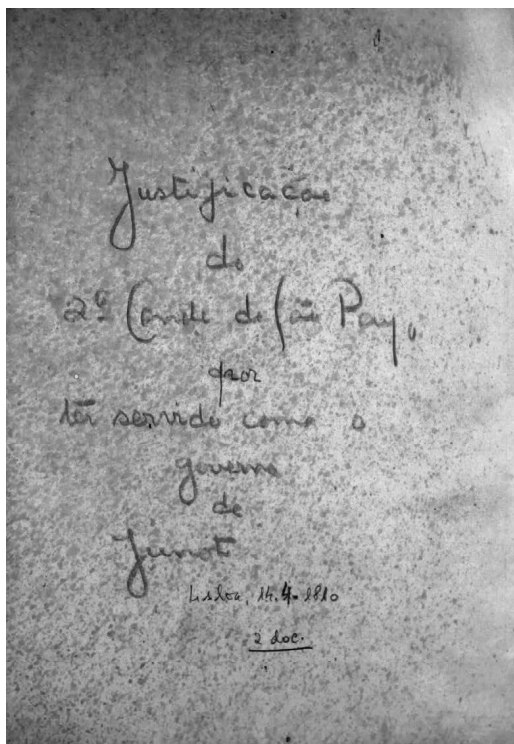 Justificação
do
2º Conde de São Payo,
por
ter servido como o
governo
de
Junot
Lisboa, 14.4.1810
2 doc.